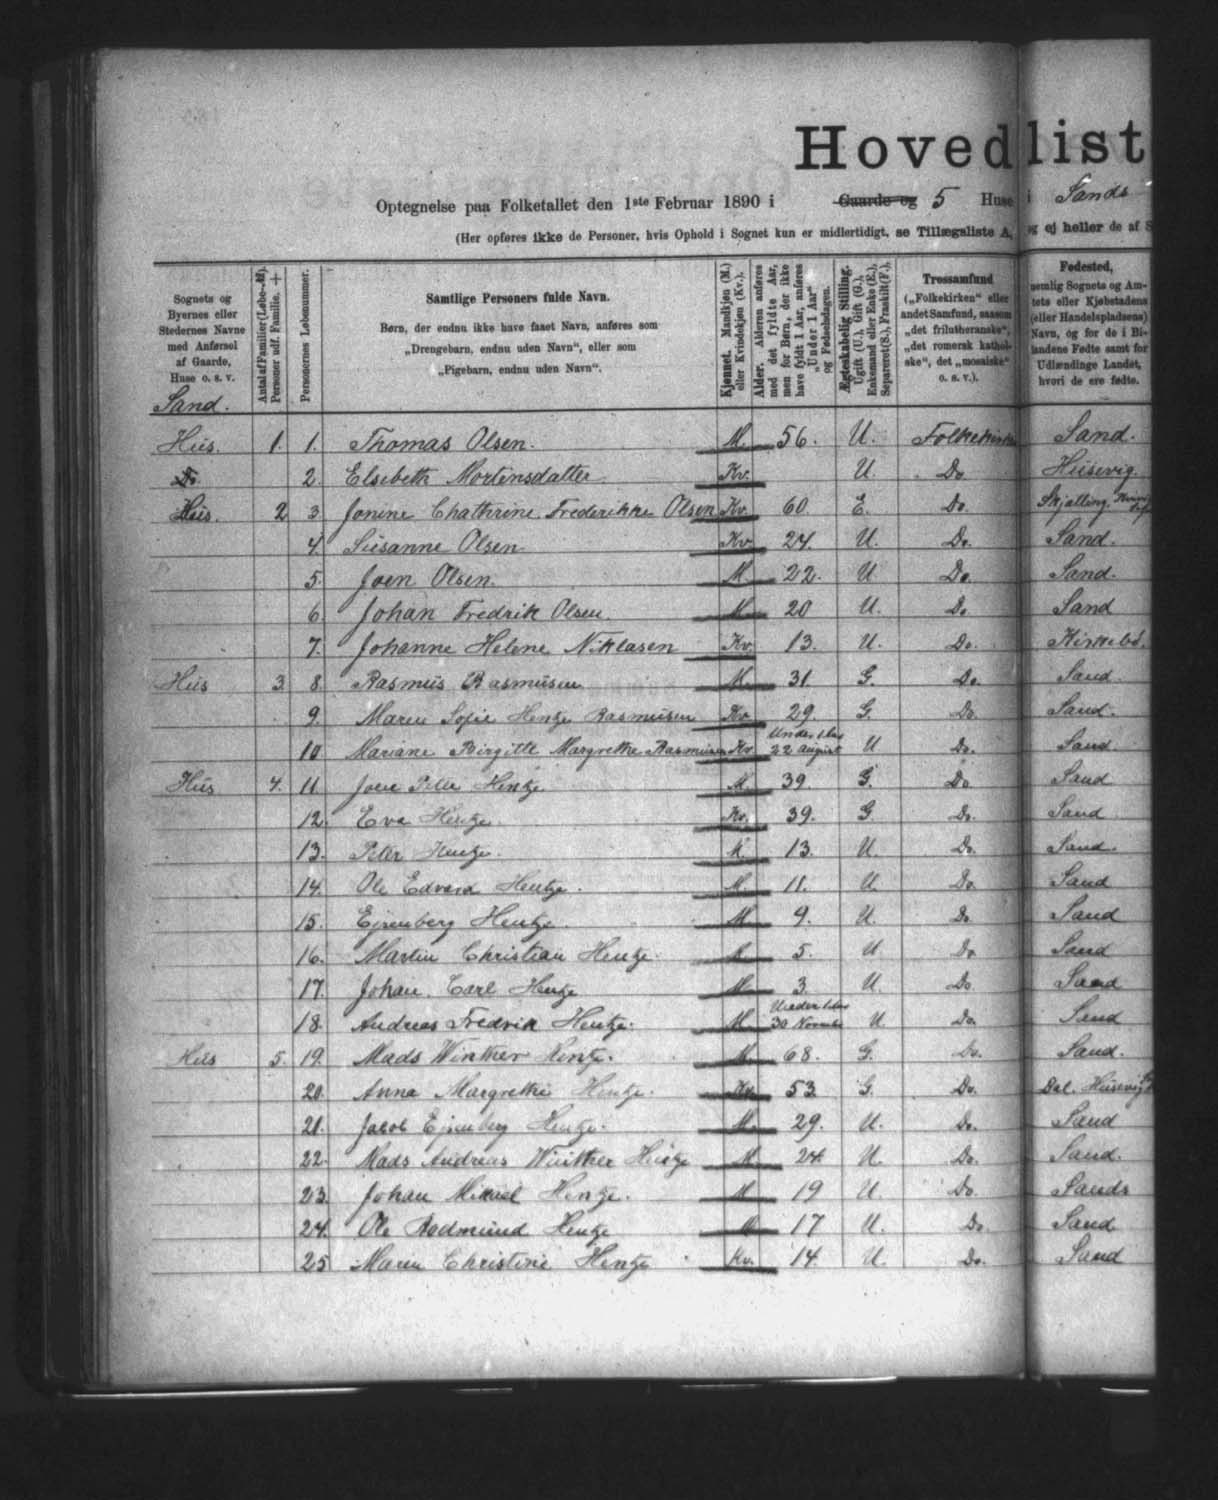 Hovedlist
Optegnelse paa Folketallet den 1ste Februar 1890 i Gaarde og 5 Huse i Sands
(Her opføres ikke de Personer, hvis Ophold i Sognet kun er midlertidigt, se Tillægsliste A, og ej heller de af S
Sognets og
Byernes eller
Stedernes Navne
med Anførsel
af Gaarde,
Huse o. s. v.
Antal af Familier (Løbe-№).
Personer udf. Familie. +
Personernes Løbenummer.
Samtlige Personers fulde Navn.
Børn, der endnu ikke have faaet Navn, anføres som
„Drengebarn, endnu uden Navn“, eller som
„Pigebarn, endnu uden Navn“.
Kjønnet. Mandkjøn (M.)
eller Kvindekjøn (Kv.).
Alder. Alderen anføres
med det fyldte Aar,
men for Børn, der ikke
have fyldt 1 Aar, anføres
„Under 1 Aar“
og Fødselsdagen.
Ægteskabelig Stilling.
Ugift (U.), Gift (G.),
Enkemand eller Enke (E.),
Separeret (S.), Fraskilt (F.).
Trossamfund
(„Folkekirken“ eller
andet Samfund, saasom
„det frilutheranske“,
„det romersk kathol-
ske“, det „mosaiske“
o. s. v.).
Fødested,
nemlig Sognets og Am-
tets eller Kjøbstadens
(eller Handelspladsens)
Navn, og for de i Bi-
landene Fødte samt for
Udlændinge Landet,
hvori de ere fødte.
Sand.
Hus. 1. 1. Thomas Olsen. M. 56. U. Folkekirken Sand.
Do. 2. Elsebeth Mortensdatter Kv. U. Do. Husevig.
Hus. 2 3 Jonine Chatrine Frederikke Olsen Kv. 60 E. Do. Skjelling.
4. Susanne Olsen Kv. 24. U. Do. Sand.
5. Joen Olsen. M. 22. U Do. Sand.
6. Johan Fredrik Olsen. M. 20 U. Do. Sand
7. Johanne Helene Niklasen Kv. 13. U. Do. Kirkebø.
Hus 3. 8. Rasmus Rasmusen M. 31. G. Do. Sand.
9. Maren Sofie Hentze Rasmusen Kv. 29. G. Do. Sand.
10 Mariane Birgitte Margrethe Rasmusen Kv. Under 1 Aar 22 August U Do. Sand
Hus 4. 11. Joen Peter Hentze M. 39. G. Do Sand
12. Eva Hentze Kv. 39. G. Do. Sand
13. Peter Hentze. M. 13. U. Do. Sand.
14. Ole Edvard Hentze. M. 11. U. Do. Sand
15. Ejsenberg Hentze. M. 9. U. Do Sand
16. Martin Christian Hentze. M. 5. U. Do. Sand
17. Johan Carl Hentze M. 3. U. Do. Sand
18. Andreas Fredrik Hentze. M. Under 1 Aar 30 Novembr U. Do. Sand
Hus 5. 19. Mads Winther Hentze. M. 68. G. Do. Sand.
20. Anna Margrethe Hentze. Kv. 53 G. Do. Dal. Husevig
21. Jacob Ejsenberg Hentze. M. 29. U. Do. Sand
22. Mads Andreas Winther Hentze M 24. U. Do. Sand.
23. Johan Mikael Hentze. M 19 U. Do. Sands
24. Ole Rodmund Hentze M 17 U. Do Sand
25 Maren Christine Hentze Kv. 14. U. Do. Sand